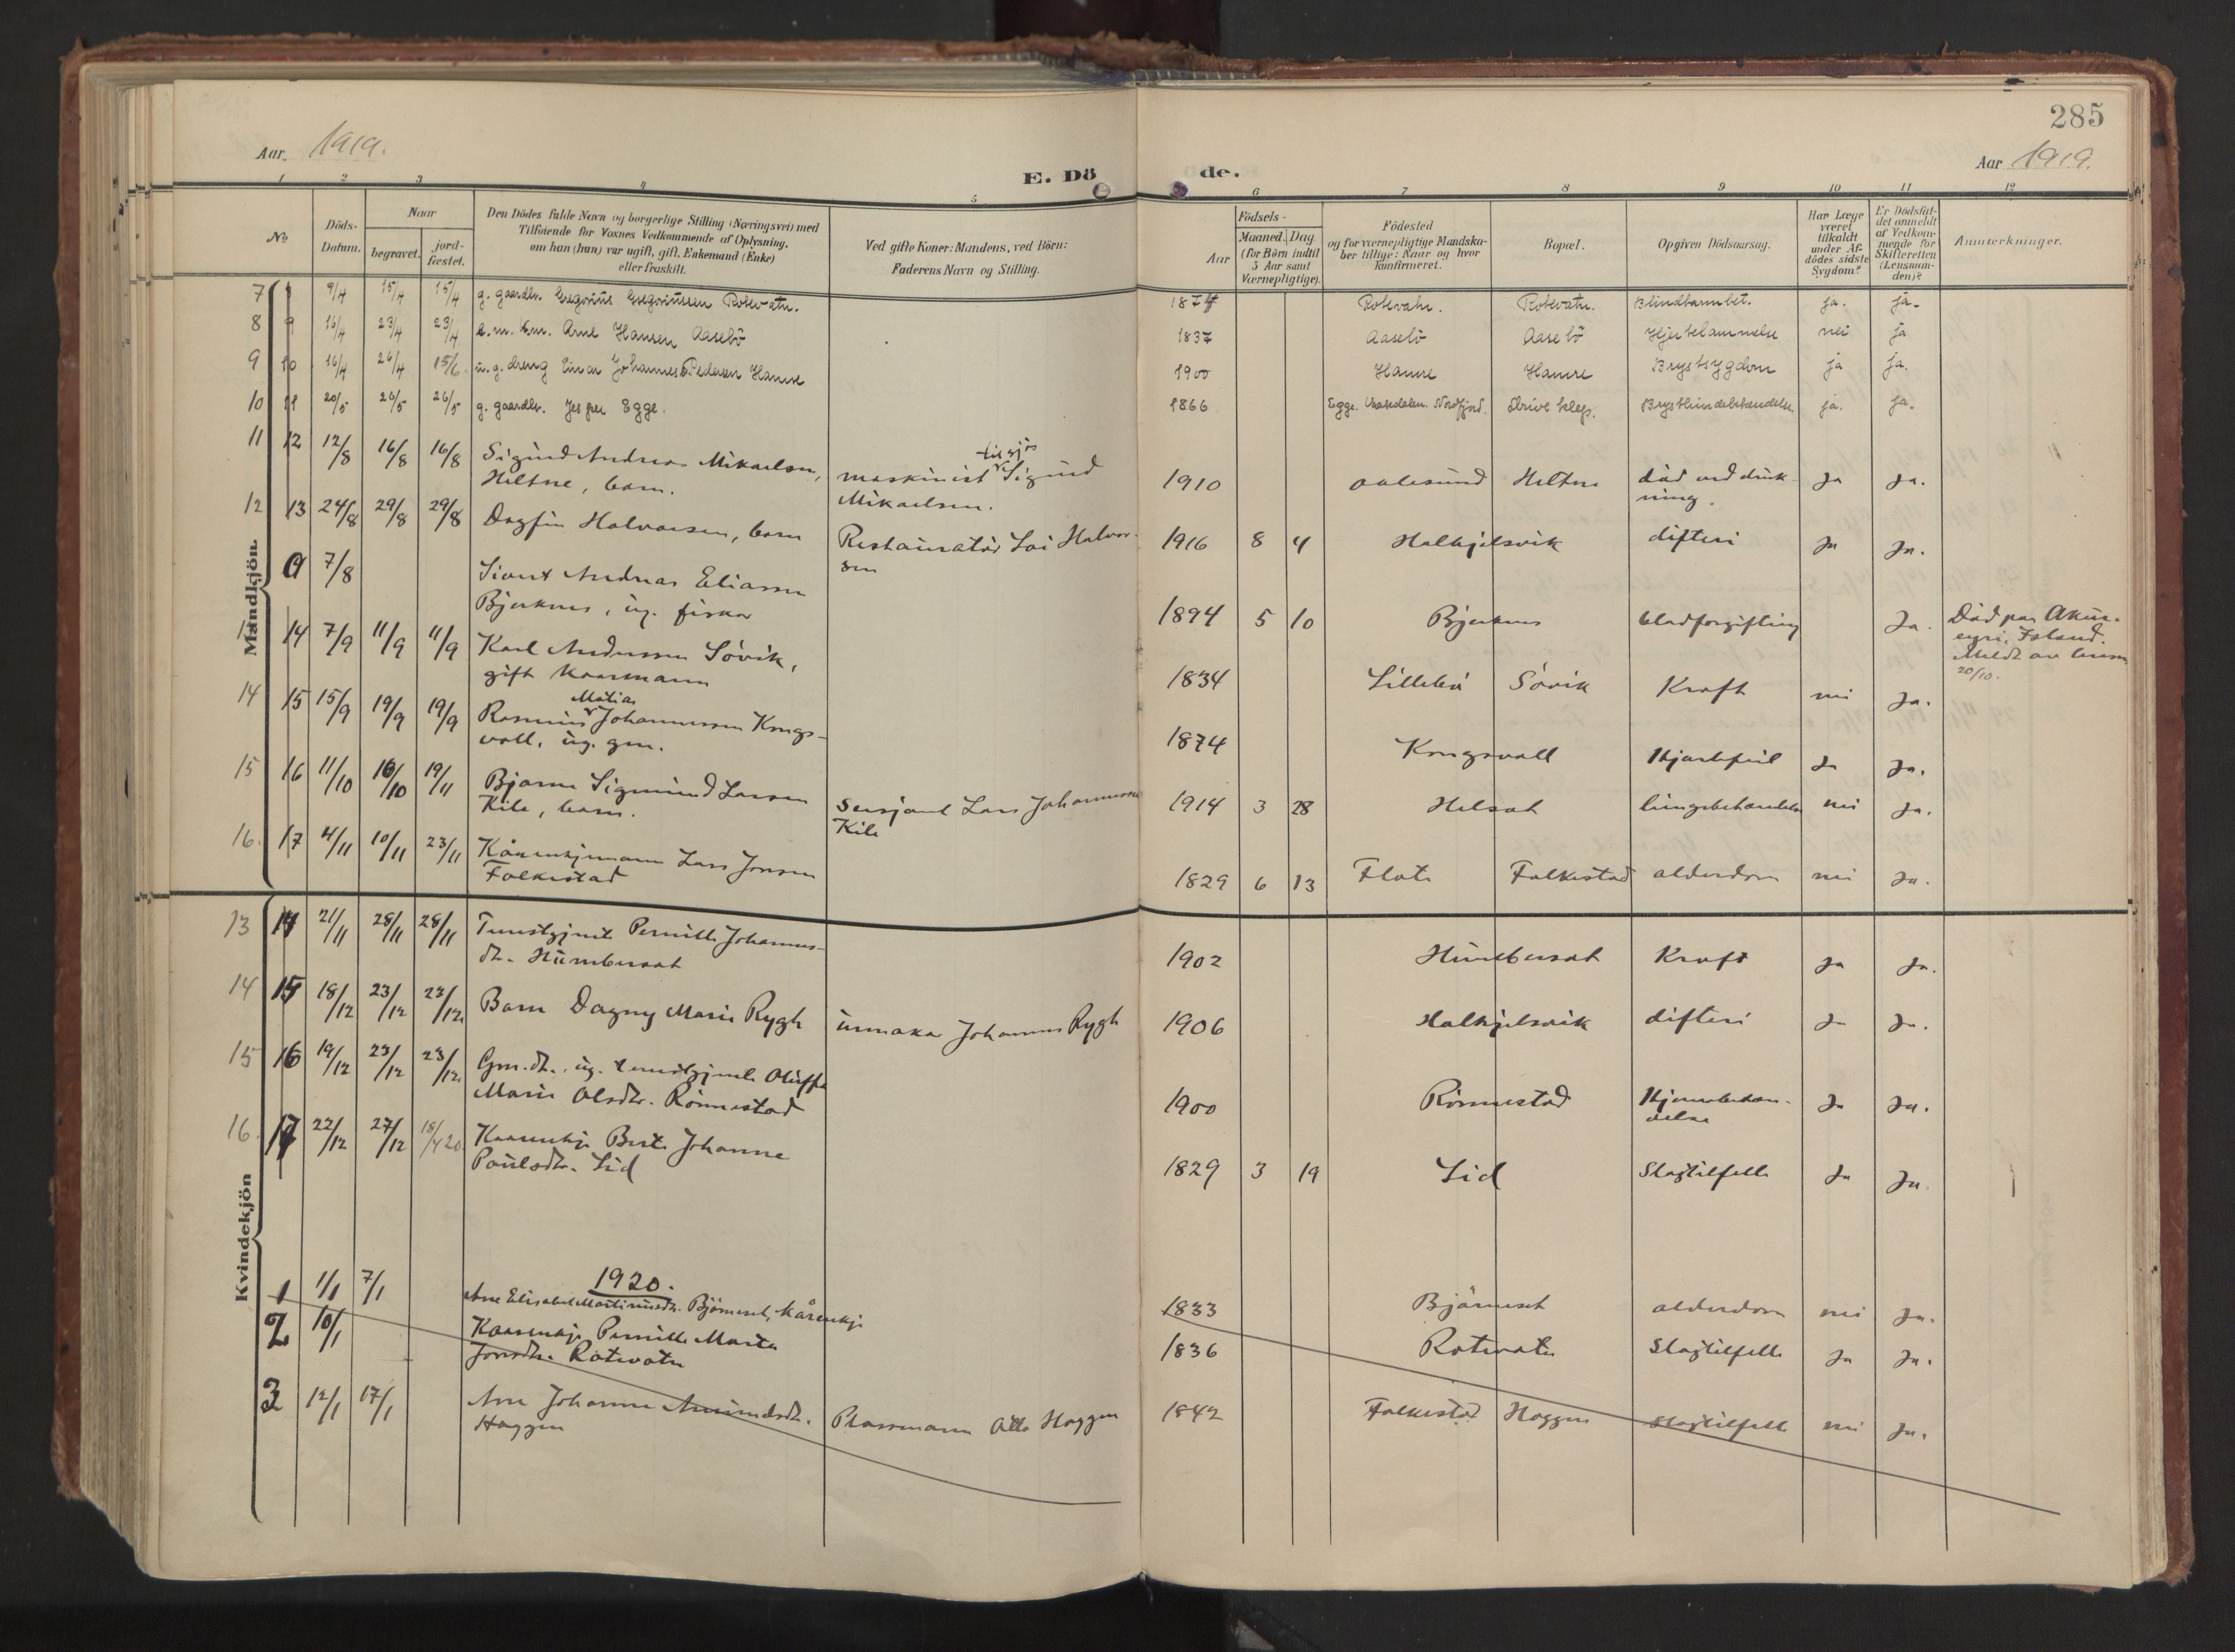 285
Aar. 1919.
E. Dö de.
Aar 1919.
1 2 3 4 5 6 7 8 9 10 11 12
No
Döds-
Datum.
Naar
begravet.
jord-
fæstet.
Den Dödes fulde Navn og borgerlige Stilling (Næringsvei) med
Tilføiende for Voxnes Vedkommende af Oplysning,
om han (hun) var ugift, gift, Enkemand (Enke)
eller fraskilt.
Ved gifte Koner: Mandens, ved Börn:
Faderens Navn og Stilling.
Födsels-
Aar
Maaned. Dag
(for Börn indtil
5 Aar samt
Værnepligtige).
Födested
og for værnepligtige Mandska-
ber tillige: Naar og hvor
konfirmeret.
Bopæl.
Opgiven Dödsaarsag.
Har Læge
været
tilkaldt
under Af-
dödes sidste
Sygdom?
Er Dödsfal-
det anmeldt
af Vedkom-
mende for
Skifteretten
(Lensman-
den)?
Anmærkninger.
Mandkjön.
7 9/4 15/4 15/4 g. gaardbr. Gregorius Gregoriussen Rotevatn. 1874 Rotevatn. Rotevatn. Blindtarmbet. ja. ja.
8 9 16/4 23/4 23/4 e.m. k.m. Arne Hansen Aasebö 1837 Aasebö Aasebö Hjertelammelse nei ja
9 10 16/4 26/4 15/6. u.g. dreng Einar Johannes Pedersen Hamre 1900 Hamre Hamre Brystsygdom ja ja.
10 11 20/5 26/5 26/5 g. gaardbr. Jesper Egge. 1866 Egge. Nordfjord. ja. ja.
11 12 12/8 16/8 16/8 Sigurd Andreas Mikaelsen, maskinist tilsjös Sigurd 1910 Aalesund Heltne död ved druk- Ja Ja.
Heltne, barn. Mikaelsen. ning.
12 13 24/8 29/8 29/8 Dagfin Halvorsen, barn Restauratör Halvor- 1916 8 4 Halkjelsvik difteri Ja Ja.
sen
a 7/8 Sivert Andreas Eliassen
Bjerknes, ug. fisker 1894 5 10 Bjerknes blodforgiftning Ja. Död paa Akur-
eyri, Island.
Meldt av
20/10.
14 7/9 11/9 11/9 Karl Anderssen Sövik,
gift kaarmann 1834 Lillebö Sövik Kræft nei Ja.
14 15 15/9 19/9 19/9 Rasmus Matias Johannessen Krugs-
voll, ug. gm. 1874 Krugsvoll Hjertefeil Ja Ja.
15 16 11/10 16/10 19/11 Bjarne Sigmund Larsen Sersjant Lars Johannessen 1914 3 28 Helset lungebetændelse nei Ja.
Kile, barn. Kile
16. 17 4/11 10/11 23/11 Kårenkjemann Lars Jonsen
Folkestad 1829 6 13 Flote Folkestad alderdom nei Ja.
Kvindekjön
13 14 21/11 28/11 28/11 Tenestgjente Pernille Johannes-
dt. Humberset 1902 Humberset Kræft Ja Ja.
14 15 18/12 23/12 23/12. Barn Dagny Marie Rygh urmaker Johannes Rygh 1906 Halkjelsvik difteri Ja Ja.
15 16 19/12 23/12 23/12. Gm.dt., ug. tenestgjente Oluffa
Marie Olsdtr. Rönnestad 1900 Rönnestad Hjernebetæn- Ja Ja.
delse
16. 17 22/12 27/12 18/4 20. Kaarenkje Berte Johanne
Paulsdtr. Lid 1829 3 19 Lid Slagtilfelle Ja Ja.
1920.
1 1/1 7/1 Ane Elisabet Martinusdtr. Bjørneset, kårenkje 1833 Bjørneset alderdom nei Ja.
2 10/1 Kaarenkje Pernille Marta
Jonsdtr. Rotevatn 1836 Rotevatn Slagtilfelle Ja Ja.
3 12/1 17/1 Ane Johanne Amundsdt. Plassmann Haggen 1842 Folkestad Haggen Slagtilfelle nei Ja.
Haggen